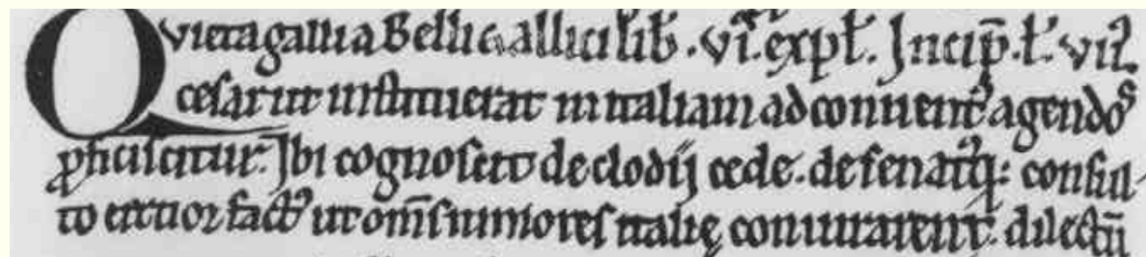 Qvieta gallia Belli Gallici lib̄ . vi. expl̄. Incip̄. l̄. vii.
ceſar ut inſtituerat in italiam ad conuent᷒ agendoſ
ꝓficiſcitur. Ibi de clodij cede. de ſenat᷒q: conſul
to certior fact᷒ ut om̄ſ iunioreſ italię coniurarent. dilectū